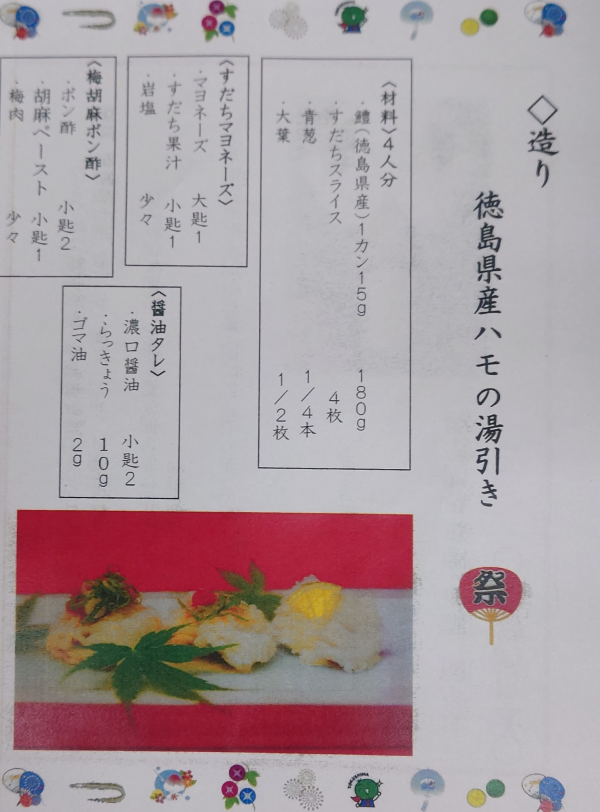 ◇造り
徳島県産ハモの湯引き
祭
〈材料〉4人分
・鱧(徳島県産)1カン15g 180g
・すだちスライス 4枚
・青葱 1/4本
・大葉 1/2枚
〈すだちマヨネーズ〉
・マヨネーズ 大匙1
・すだち果汁 小匙1
・岩塩 少々
〈梅胡麻ポン酢〉
・ポン酢 小匙2
・胡麻ペースト 小匙1
・梅肉 少々
〈醤油タレ〉
・濃口醤油 小匙2
・らっきょう 10g
・ゴマ油 2g